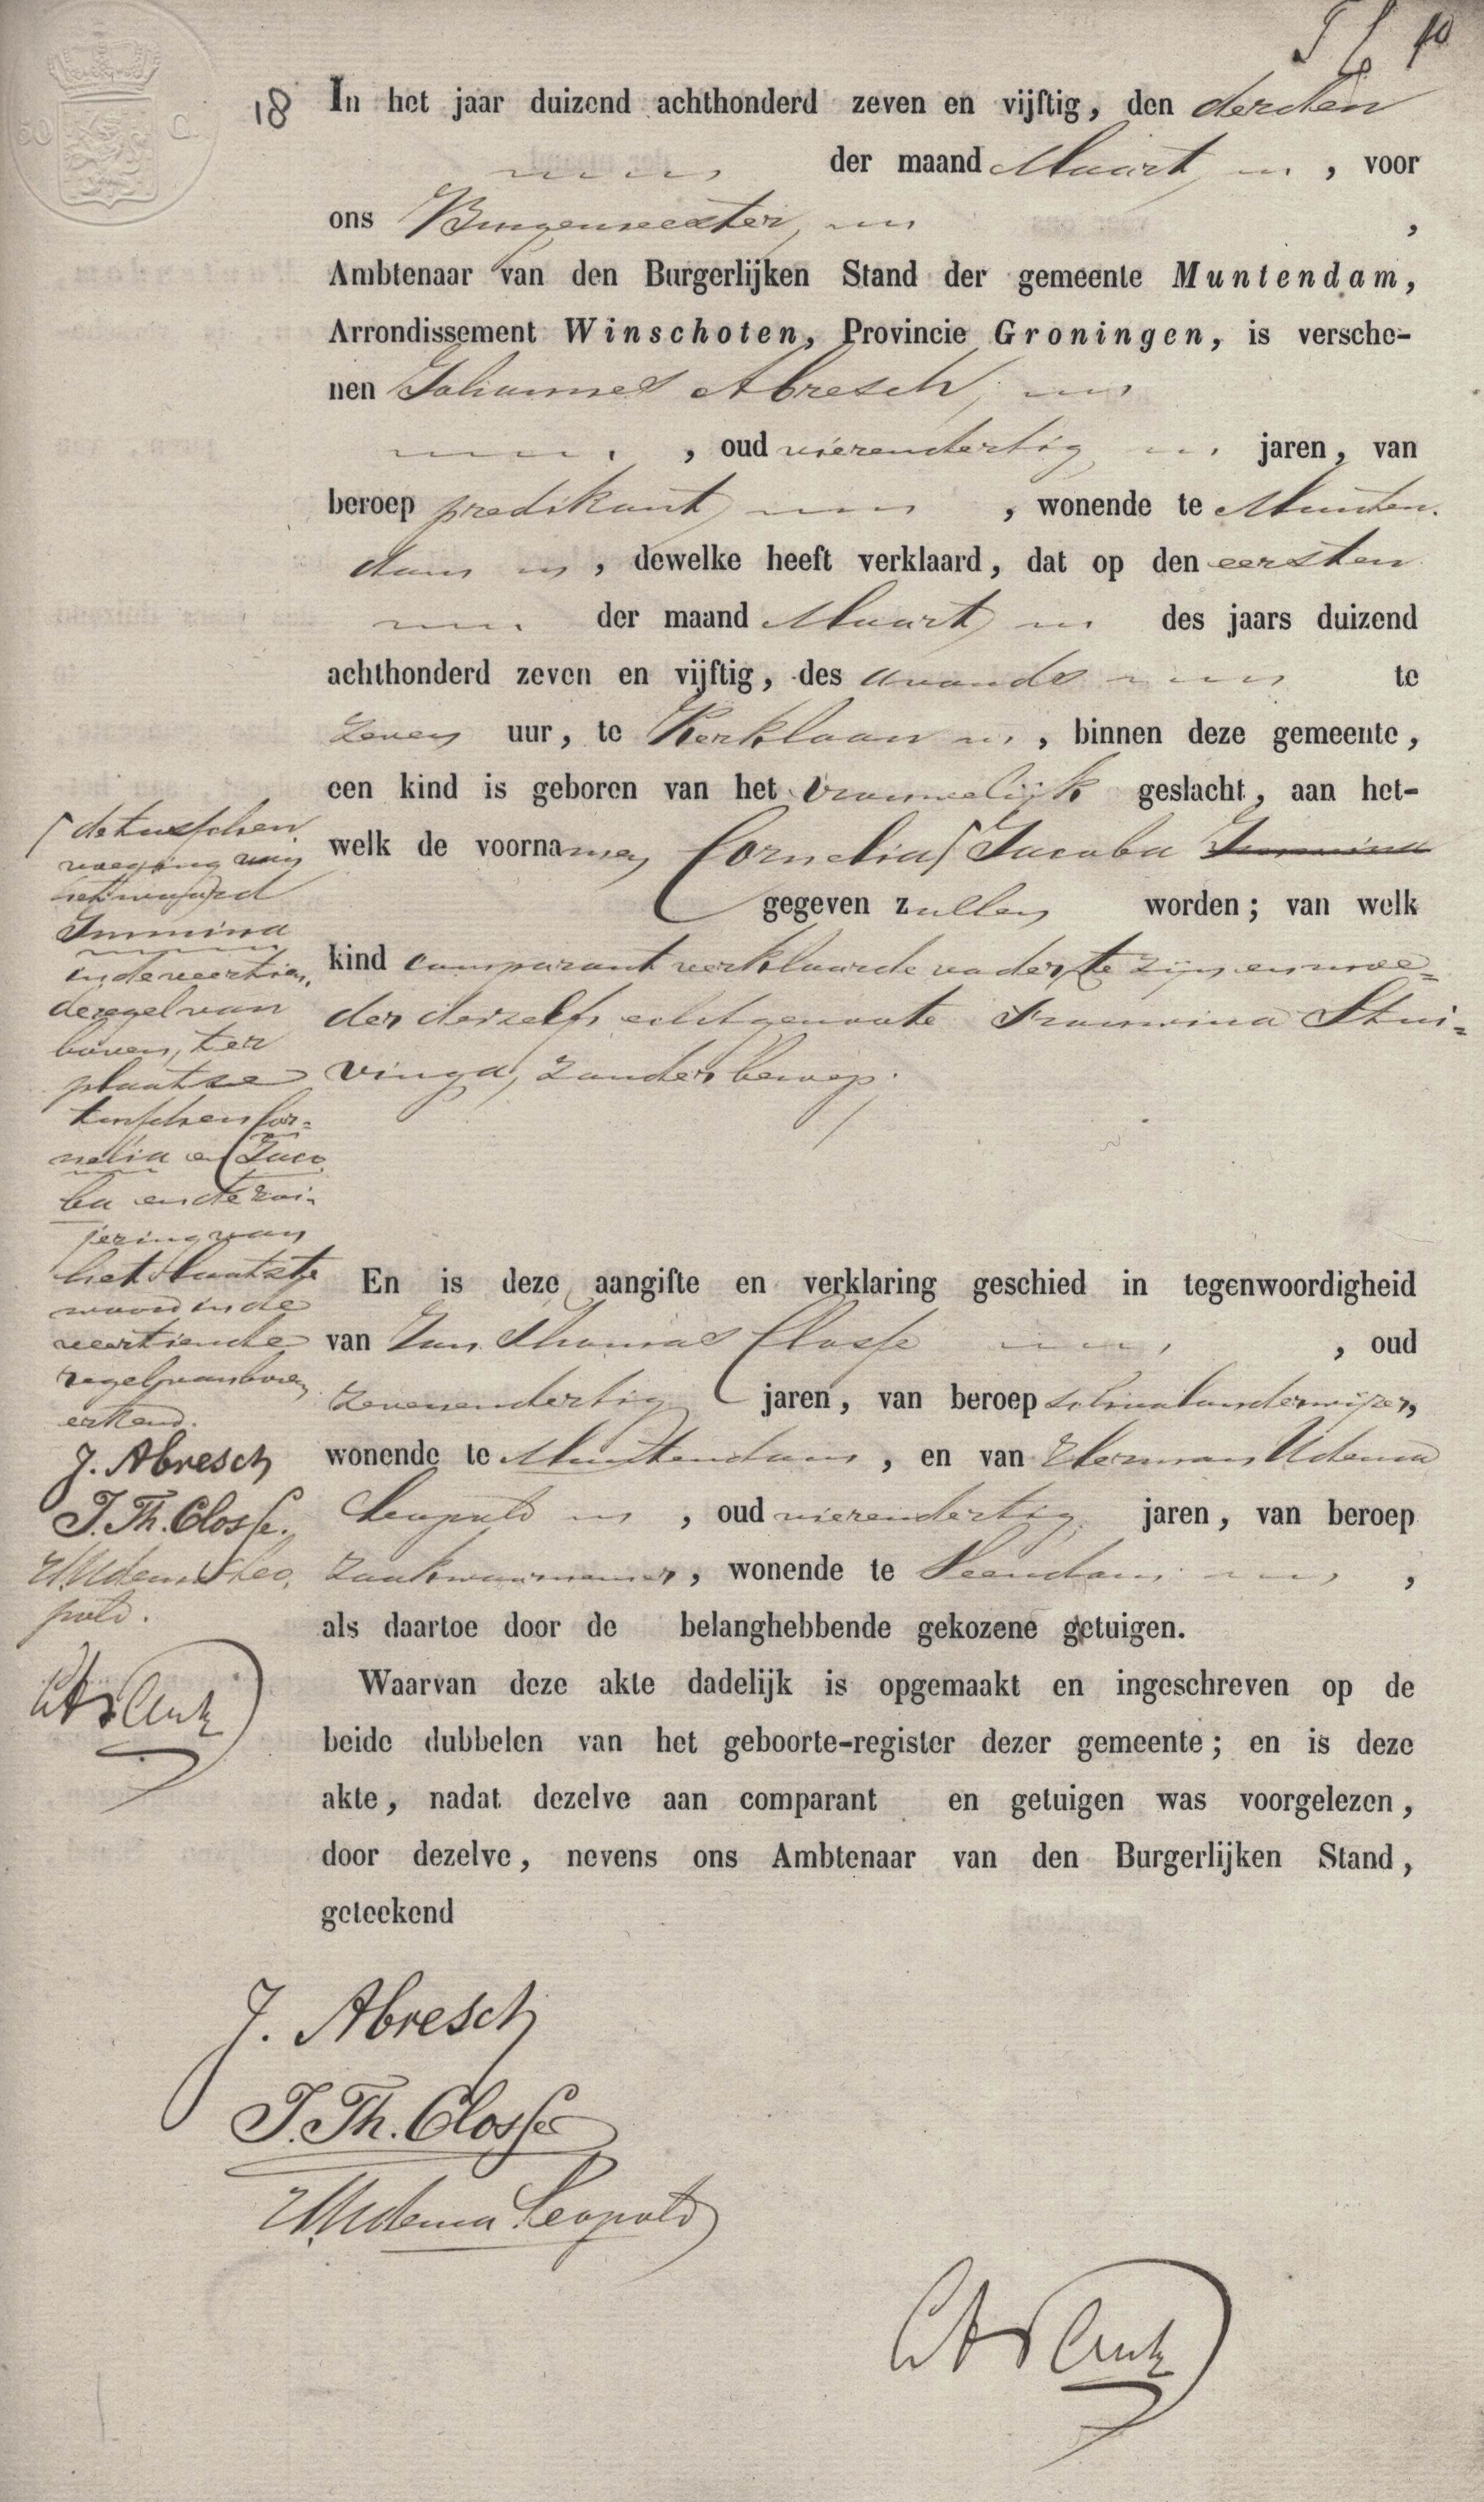 10
18 In het jaar duizend achthonderd zeven en vijftig, den derden
der maand Maart, voor
ons Burgemeester,
Ambtenaar van den Burgerlijken Stand der gemeente Muntendam,
Arrondissement Winschoten, Provincie Groningen, is versche-
nen Johannes Abresch,
, oud vierendertig jaren, van
beroep predikant, wonende te Munten-
dam, dewelke heeft verklaard, dat op den eersten
der maand Maart des jaars duizend
achthonderd zeven en vijftig, des avonds te
zeven uur, te Kerklaan, binnen deze gemeente,
een kind is geboren van het vrouwelijk geslacht, aan het-
welk de voornamen Cornelia Jacoba Immina
gegeven zullen worden; van welk
kind comparant verklaarde vader te zijn en moe-
der deszelfs echtgenoote Frouwina Stui-
vinga, zonder beroep.
de tusschen
voeging van
het woord
Immina
in de veertien
de regel van
boven, ter
plaatse
tusschen Cor-
nelia en Jaco
ba en de roi-
jering van
het laatste
woord in de
veertiende
regel van boven
erkend.
J. Abresch
J. Th. Closse.
H Udema Leo
pold.
En is deze aangifte en verklaring geschied in tegenwoordigheid
van Jan Thomas Closse, oud
zevenendertig jaren, van beroep schoolonderwijzer,
wonende te Muntendam, en van Herman Udema
Leopold, oud vierendertig jaren, van beroep
zaakwaarnemer, wonende te Veendam,
als daartoe door de belanghebbende gekozene getuigen.
Waarvan deze akte dadelijk is opgemaakt en ingeschreven op de
beide dubbelen van het geboorte-register dezer gemeente; en is deze
akte, nadat dezelve aan comparant en getuigen was voorgelezen,
door dezelve, nevens ons Ambtenaar van den Burgerlijken Stand,
geteekend
J. Abresch
J. Th. Closse
H Udema Leopold